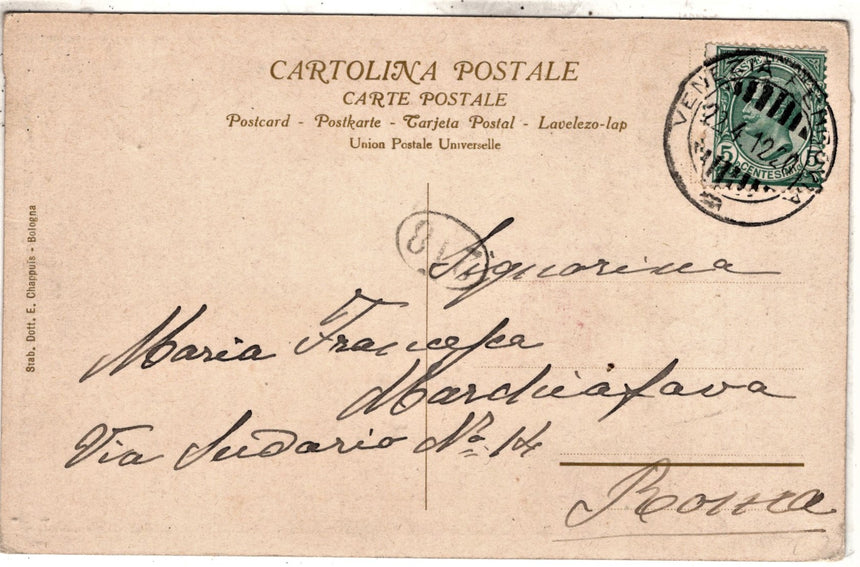 CARTOLINA POSTALE
CARTE POSTALE
Postcard - Postkarte - Tarjeta Postal - Lavelezo-lap
Union Postale Universelle
VENEZIA
12
5
CENTESIMI
Signorina
Maria Francesca
Marchiafava
Via Sudario Nº 14
Roma
Stab. Dott. E. Chappuis - Bologna